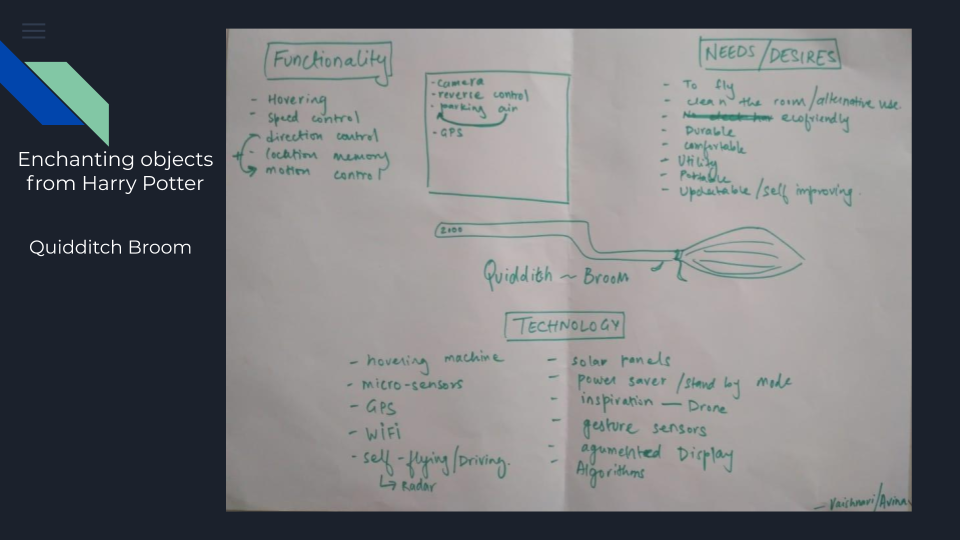 Enchanting objects
from Harry Potter
Quidditch Broom
Functionality
- Hovering
- speed control
- direction control
- location memory
- motion control
- camera
- reverse control
- parking air
- GPS
NEEDS/DESIRES
- To fly
- clean the room/alternative use.
- ecofriendly
- Durable
- comfortable
- Utility
- Portable
- Updatable/self improving.
2000
Quidditch ~ Broom
TECHNOLOGY
- hovering machine
- micro-sensors
- GPS
- WiFi
- self-flying/Driving.
↳ Radar
- solar panels
- power saver/stand by mode
- inspiration — Drone
- gesture sensors
- agumented Display
- Algorithms
- Vaishnavi/Avina